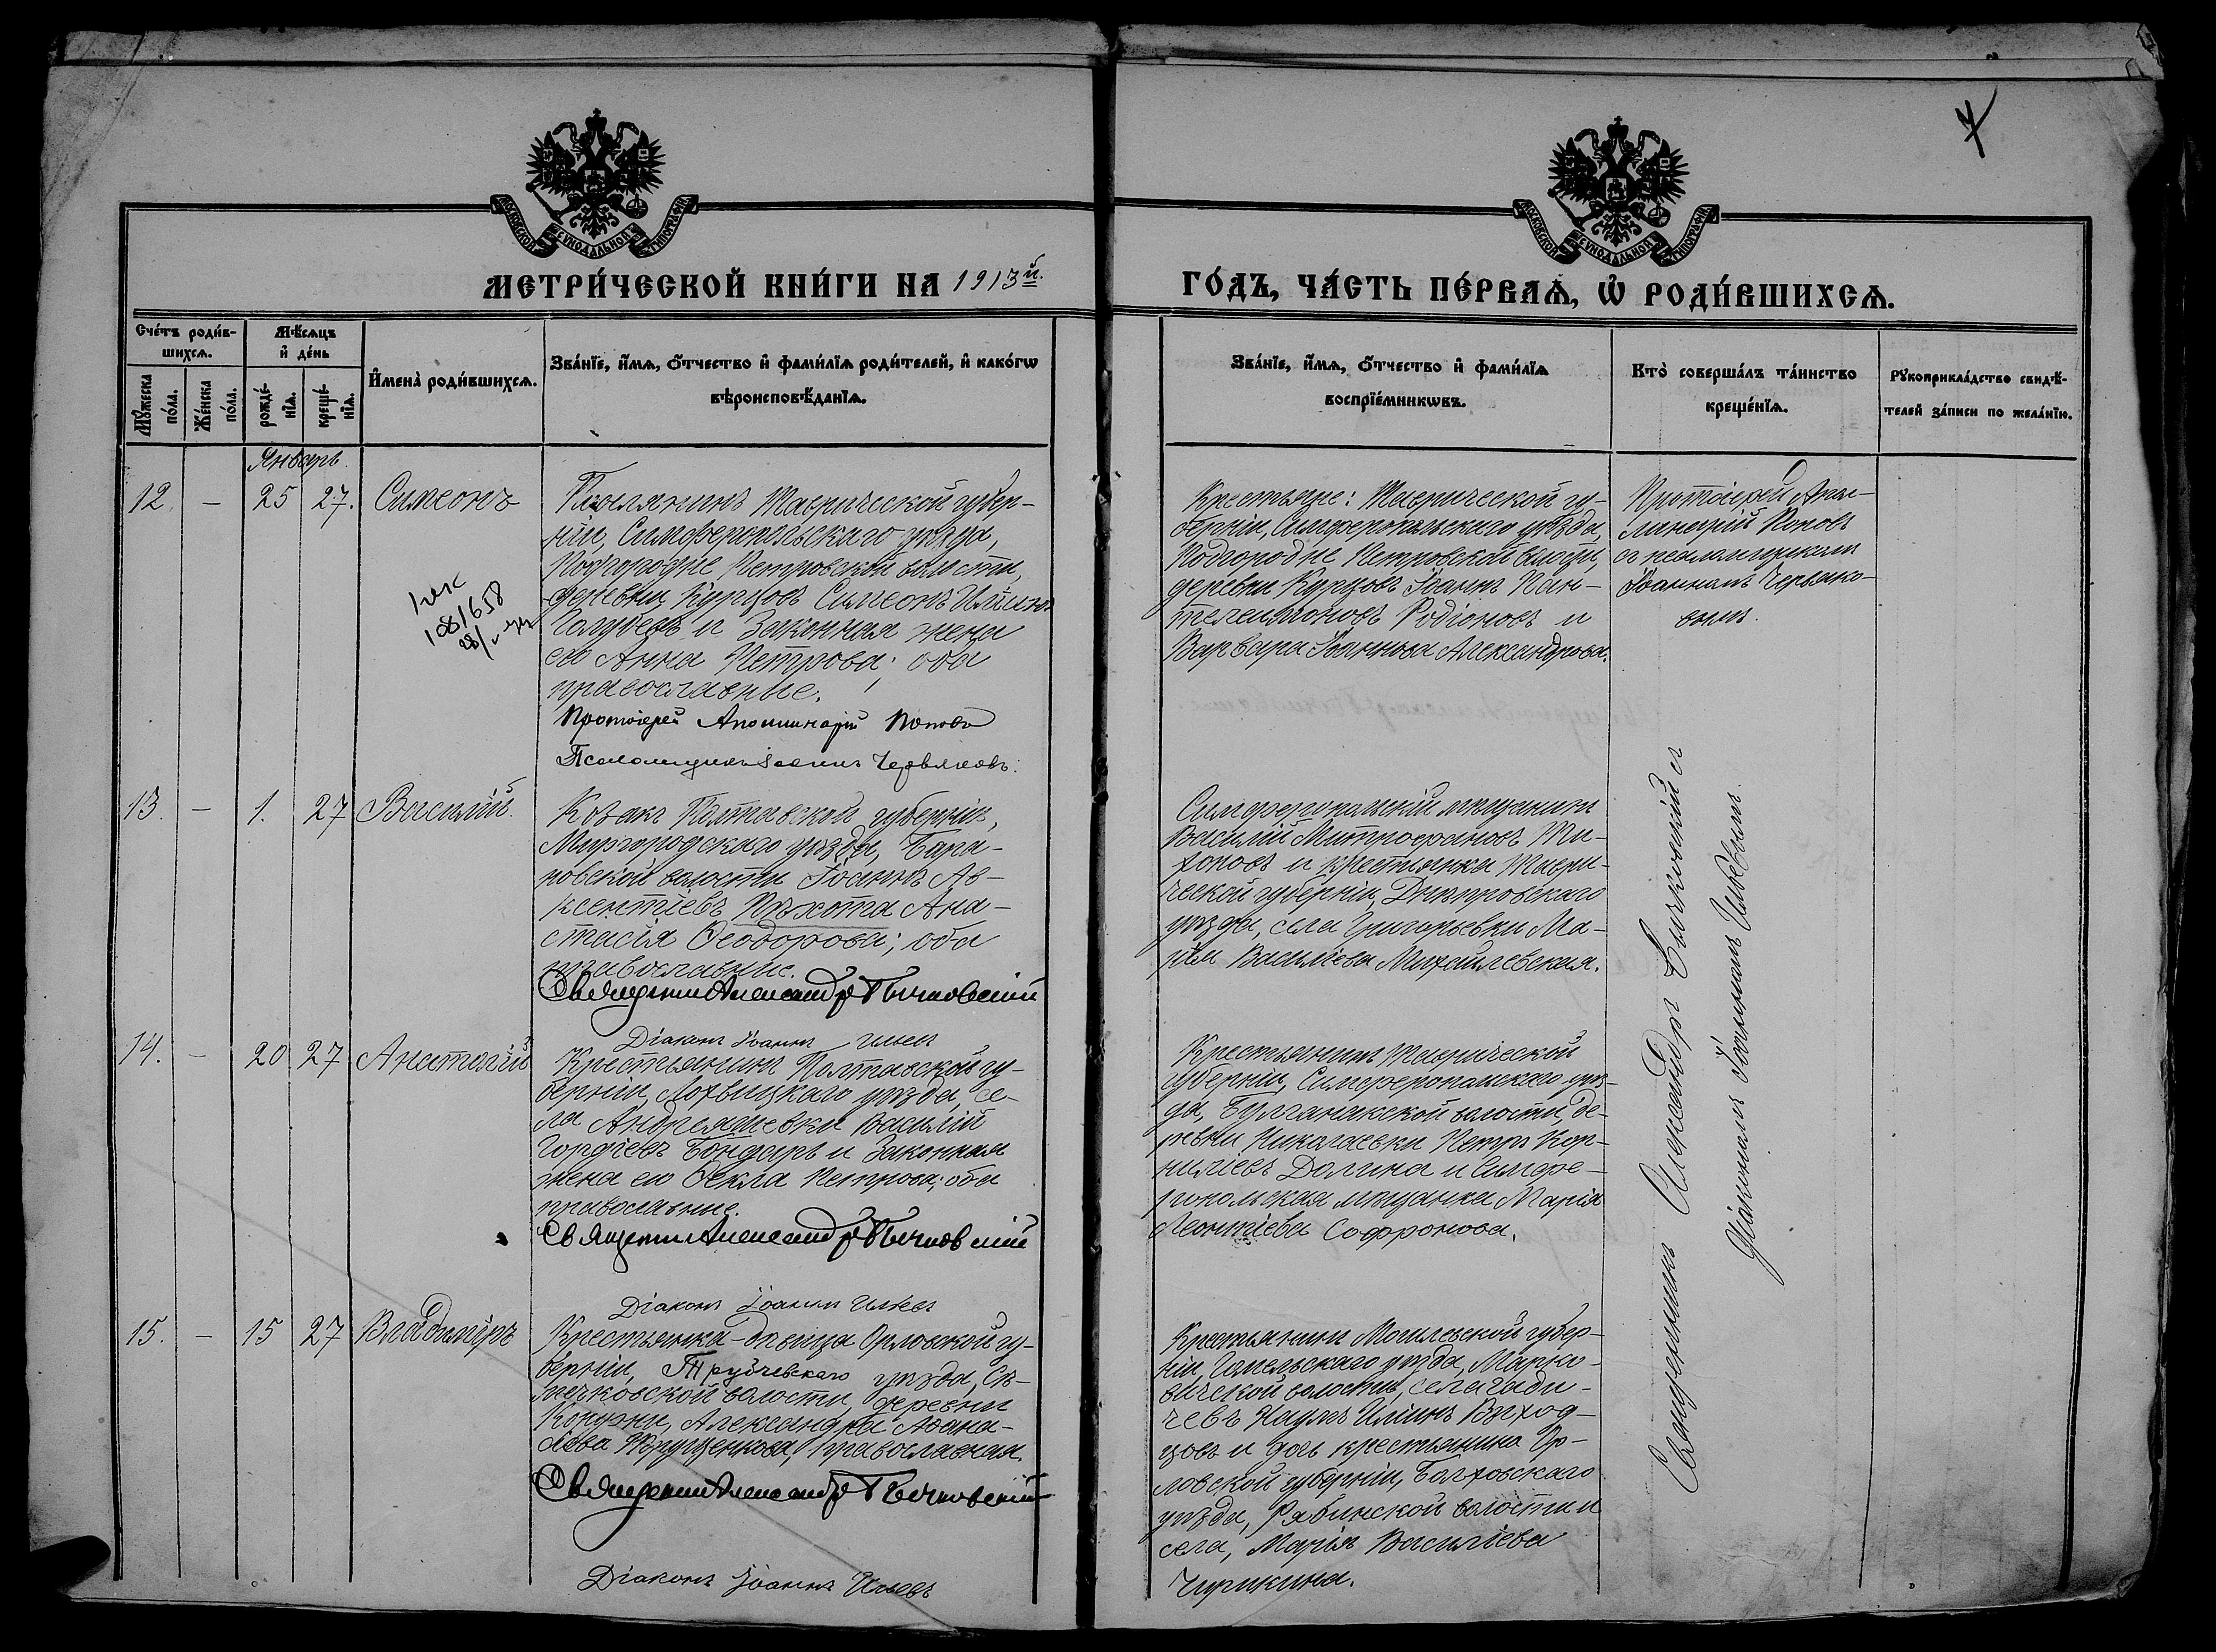 7
МОСКОВСКОЙ СѴНОДАЛЬНОЙ ТИПОГРАФІИ
МОСКОВСКОЙ СѴНОДАЛЬНОЙ ТИПОГРАФІИ
МЕТРИ́ЧЕСКОЙ КНИ́ГИ НА 1913й.
ГО́ДЪ, ЧА́СТЬ ПЕ́РВАѦ, Ѡ҆ РОДИ́ВШИХСѦ.
Сче́тъ роди́в-
шихсѧ.
Мѣ́сѧцъ
и҆ де́нь
Мꙋ́жеска
по́ла.
Же́нска
по́ла.
рожде́-
нїѧ.
креще́-
нїѧ.
И҆мена̀ роди́вшихсѧ.
Зва́нїе, и҆́мѧ, ѻ҆́тчество и҆ фами́лїѧ роди́телей, и҆ како́гѡ
вѣроисповѣ́данїѧ.
Зва́нїе, и҆́мѧ, ѻ҆́тчество и҆ фами́лїѧ
воспрїе́мникѡвъ.
Кто̀ соверша́лъ та́инство
креще́нїѧ.
Рꙋкоприкла́дство свидѣ́-
телей за́писи по жела́нїю.
Январь.
12. — 25 27. Симеонъ
Поселянинъ Таврической губер-
ніи, Симферопольскаго уѣзда,
Подгородне Петровской волости,
деревни Курцовъ Симеонъ Ильинъ
Голубевъ и законная жена
его Анна Петрова; оба
православные.
Протоіерей Аполлинарій Поповъ
Псаломщикъ Іоаннъ Червяковъ.
1081658
Крестьяне: Таврической гу-
берніи, Симферопольскаго уѣзда,
Подгородне Петровской волости,
деревни Курцовъ Іоаннъ Пан-
телеимоновъ Родіоновъ и
Варвара Іоаннова Александрова.
Протоіерей Апол-
линарій Поповъ
съ псаломщикомъ
Іоанномъ Червяко-
вымъ.
13. — 1. 27 Василій.
Козакъ Полтавской губерніи,
Миргородскаго уѣзда, Бара-
новской волости Іоаннъ Ав-
ксентіевъ Пѣхота Ана-
стасія Ѳеодорова; оба
православные.
Священникъ Александръ Бычковскій
Діаконъ Іоаннъ Ильевъ
Симферопольскій мѣщанинъ
Василій Митрофановъ Ти-
хоновъ и крестьянка Таври-
ческой губерніи, Днѣпровскаго
уѣзда, села Григорьевки Ма-
рія Васильева Михайлевская.
14. — 20 27 Анатолій
Крестьянинъ Полтавской гу-
берніи, Лохвицкаго уѣзда, се-
ла Андреяшевки Василій
Гордіевъ Бондарь и законная
жена его Ѳекла Петрова; оба
православные.
Священникъ Александръ Бычковскій
Діаконъ Іоаннъ Ильевъ
Крестьянинъ Таврической
губерніи, Симферопольскаго уѣз-
да, Булганакской волости, де-
ревни Николаевки Петръ Кор-
ниліевъ Долина и Симфе-
ропольская мѣщанка Марія
Леонтіева Софронова.
15. — 15 27 Владиміръ
Крестьянка-дѣвица Орловской гу-
берніи, Трубчевскаго уѣзда, Сѣ-
мячковской волости, деревни
Александра Аѳана-
сіева православная.
Священникъ Александръ Бычковскій
Діаконъ Іоаннъ Ильевъ
Крестьянинъ Могилевской губер-
ніи, Гомельскаго уѣзда, Марко-
вичской волости, села Гади-
чевъ Наумъ Ильинъ Выход-
цовъ и дочь крестьянина Ор-
ловской губерніи, Болховскаго
уѣзда, Рябинской волости и
села, Марія Василіева
Чирикина.
Священникъ Александръ Бычковскій съ
діакономъ Іоанномъ Ильевымъ.